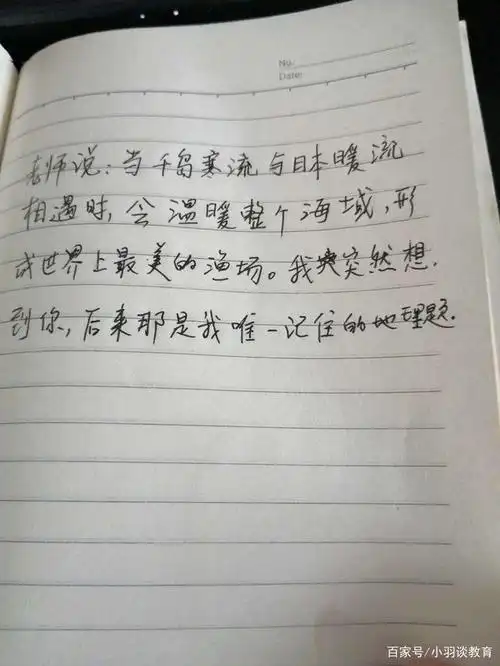 No:
Date:
老师说：当千岛寒流与日本暖流
相遇时，会温暖整个海域，形
成世界上最美的渔场。我突然想
到你，后来那是我唯一记住的地理题.
百家号/小羽谈教育